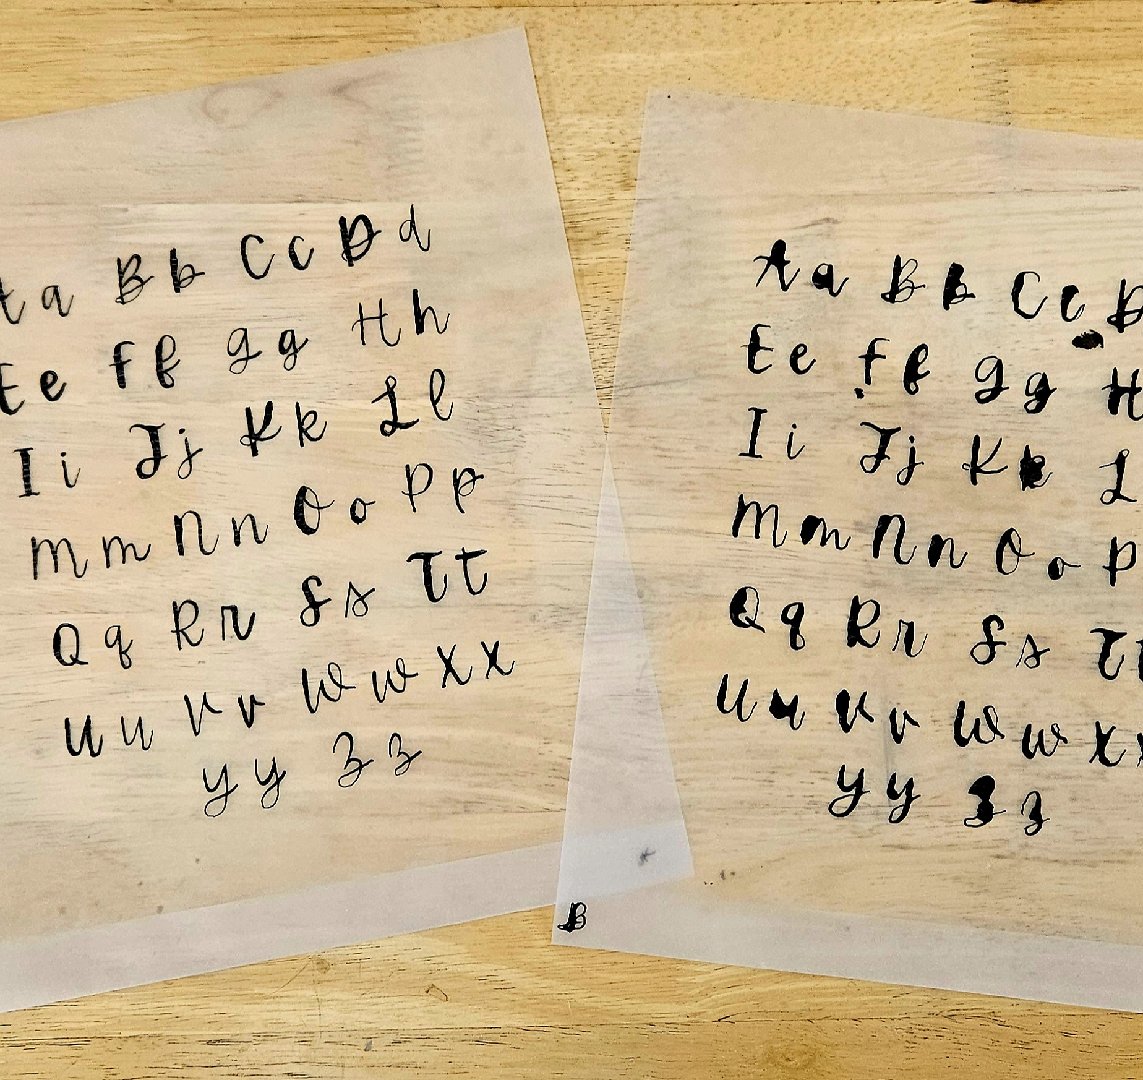 Aa Bb Cc Dd
Ee Ff Gg Hh
Ii Jj Kk Ll
Mm Nn Oo Pp
Qq Rr Ss Tt
Uu Vv Ww Xx
Yy Zz
Aa Bb Cc D
Ee Ff Gg H
Ii Jj Kk L
Mm Nn Oo P
Qq Rr Ss Tt
Uu Vv Ww Xx
Yy Zz
B